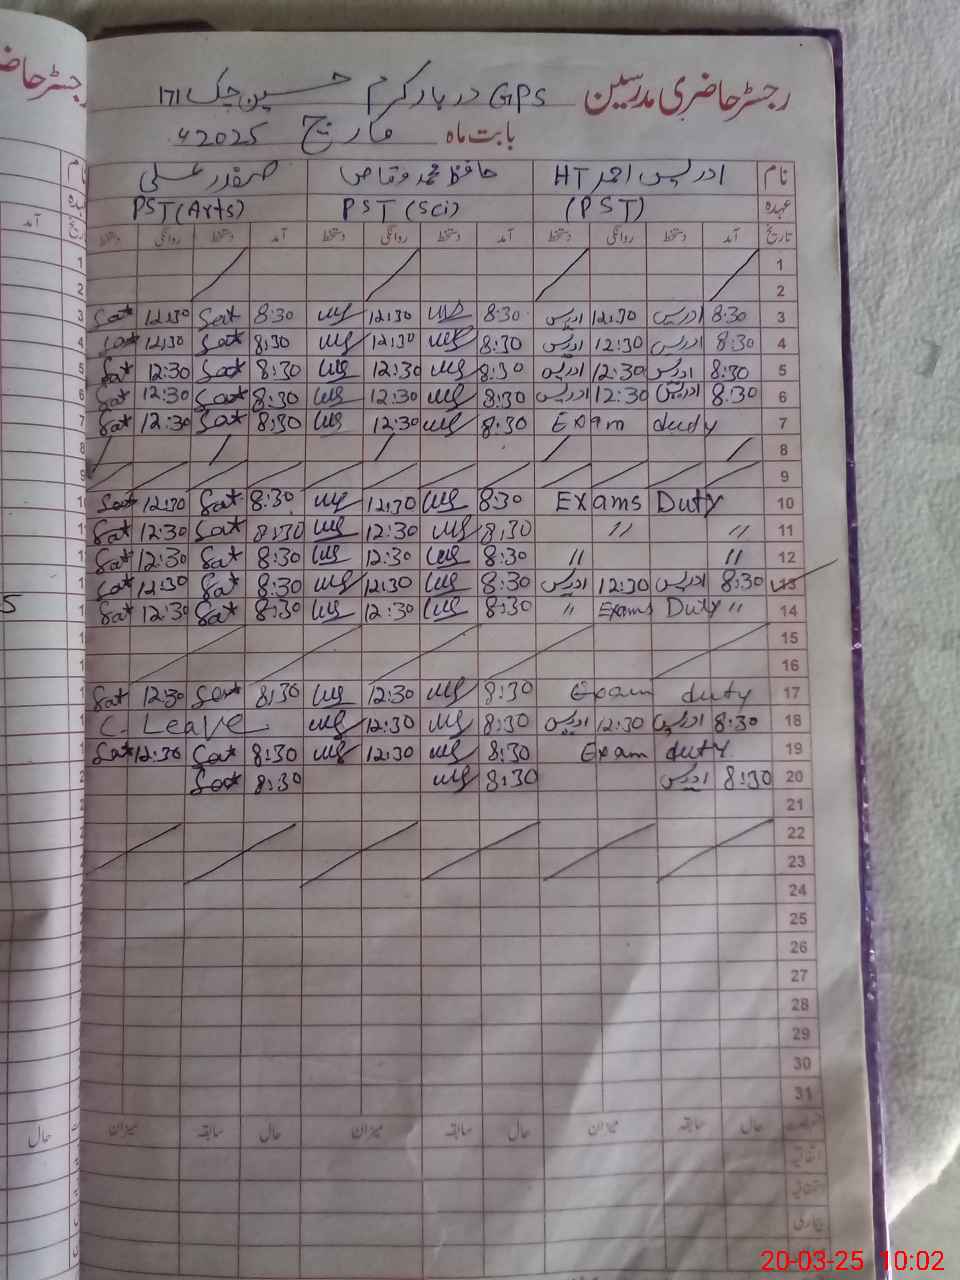 رجسٹر حاضری مدرسین GPS دربار کرم حسین چک 171
بابت ماہ مارچ 2025ء
نام ادریس احمد HT حافظ محمد وقاص صفدر علی
عہدہ (PST) PST (Sci) PST (Arts)
تاریخ آمد دستخط روانگی دستخط آمد دستخط روانگی دستخط آمد دستخط روانگی دستخط
1
2
3 8:30 ادریس 12:30 ادریس 8:30 12:30 8:30 Sat 12:30 Sat
4 8:30 ادریس 12:30 ادریس 8:30 12:30 8:30 Sat 12:30 Sat
5 8:30 ادریس 12:30 ادریس 8:30 12:30 8:30 Sat 12:30 Sat
6 8:30 ادریس 12:30 ادریس 8:30 12:30 8:30 Sat 12:30 Sat
7 Exam duty 8:30 12:30 8:30 Sat 12:30 Sat
8
9
10 Exams Duty 8:30 12:30 8:30 Sat 12:30 Sat
11 〃 〃 8:30 12:30 8:30 Sat 12:30 Sat
12 〃 〃 8:30 12:30 8:30 Sat 12:30 Sat
13 8:30 ادریس 12:30 ادریس 8:30 12:30 8:30 Sat 12:30 Sat
14 〃 Exams Duty 〃 8:30 12:30 8:30 Sat 12:30 Sat
15
16
17 Exam duty 8:30 12:30 8:30 Sat 12:30 Sat
18 8:30 ادریس 12:30 ادریس 8:30 12:30 C. Leave
19 Exam duty 8:30 12:30 8:30 Sat 12:30 Sat
20 8:30 ادریس 8:30 8:30 Sat
21
22
23
24
25
26
27
28
29
30
31
حال سابقہ میزان حال سابقہ میزان حال سابقہ میزان
اتفاقیہ
استحقاقیہ
بیماری
20-03-25 10:02